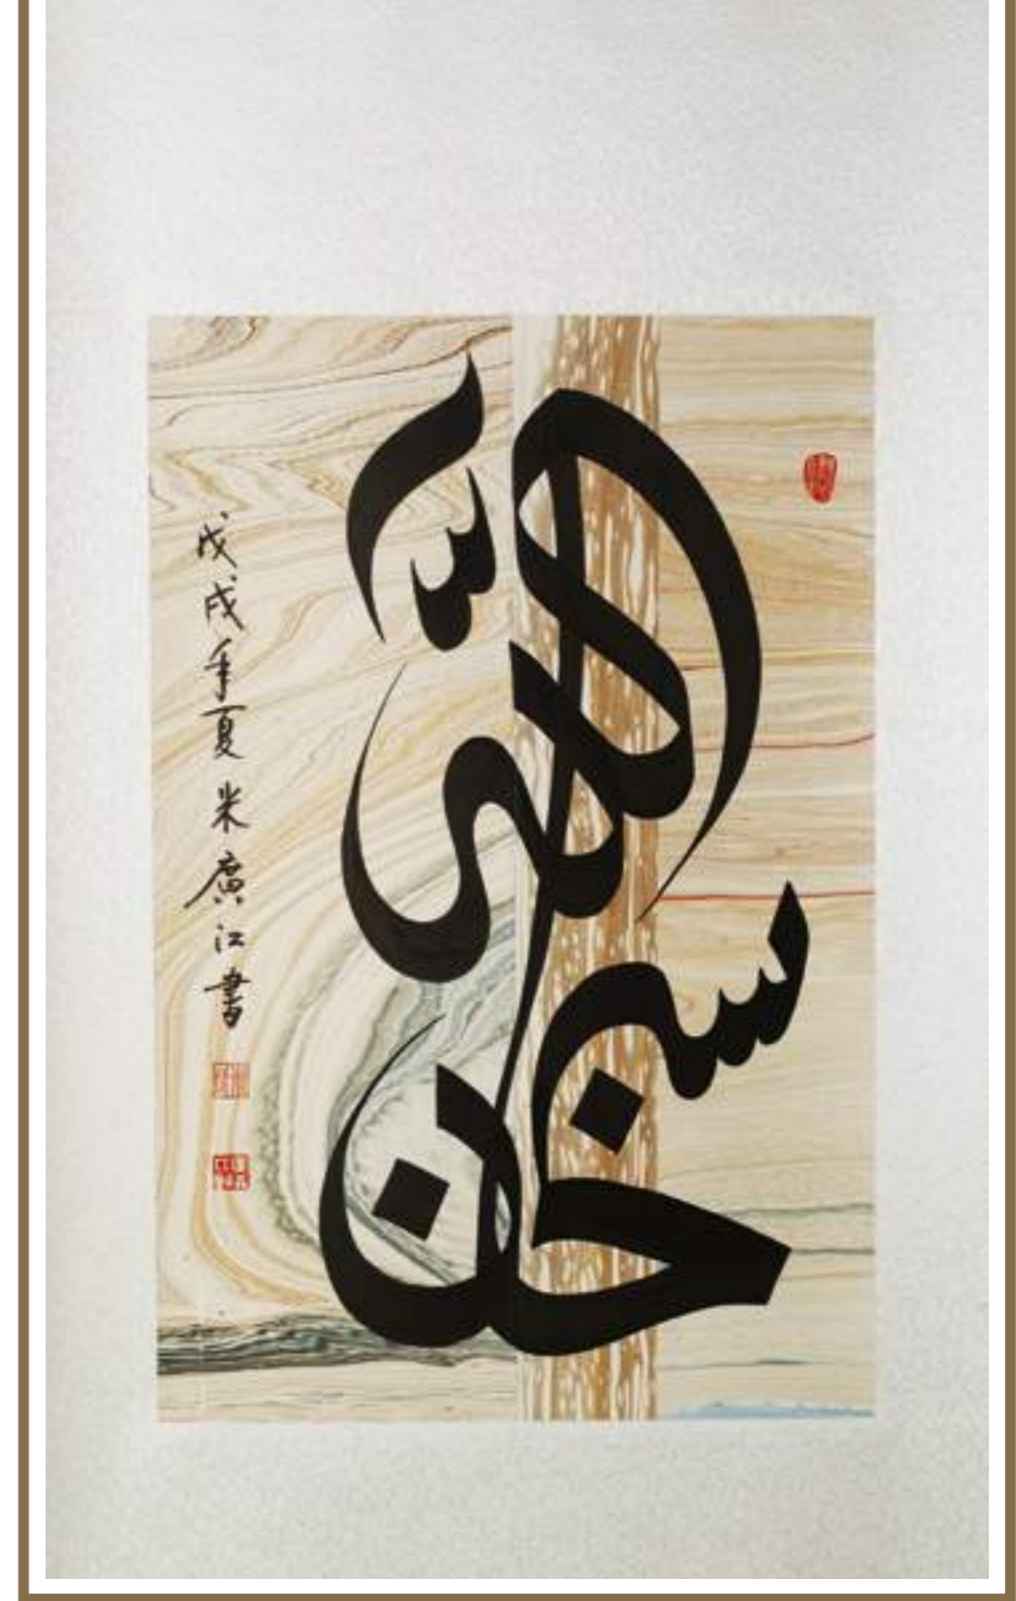 سبحان الله
戊戌年夏米廣江書